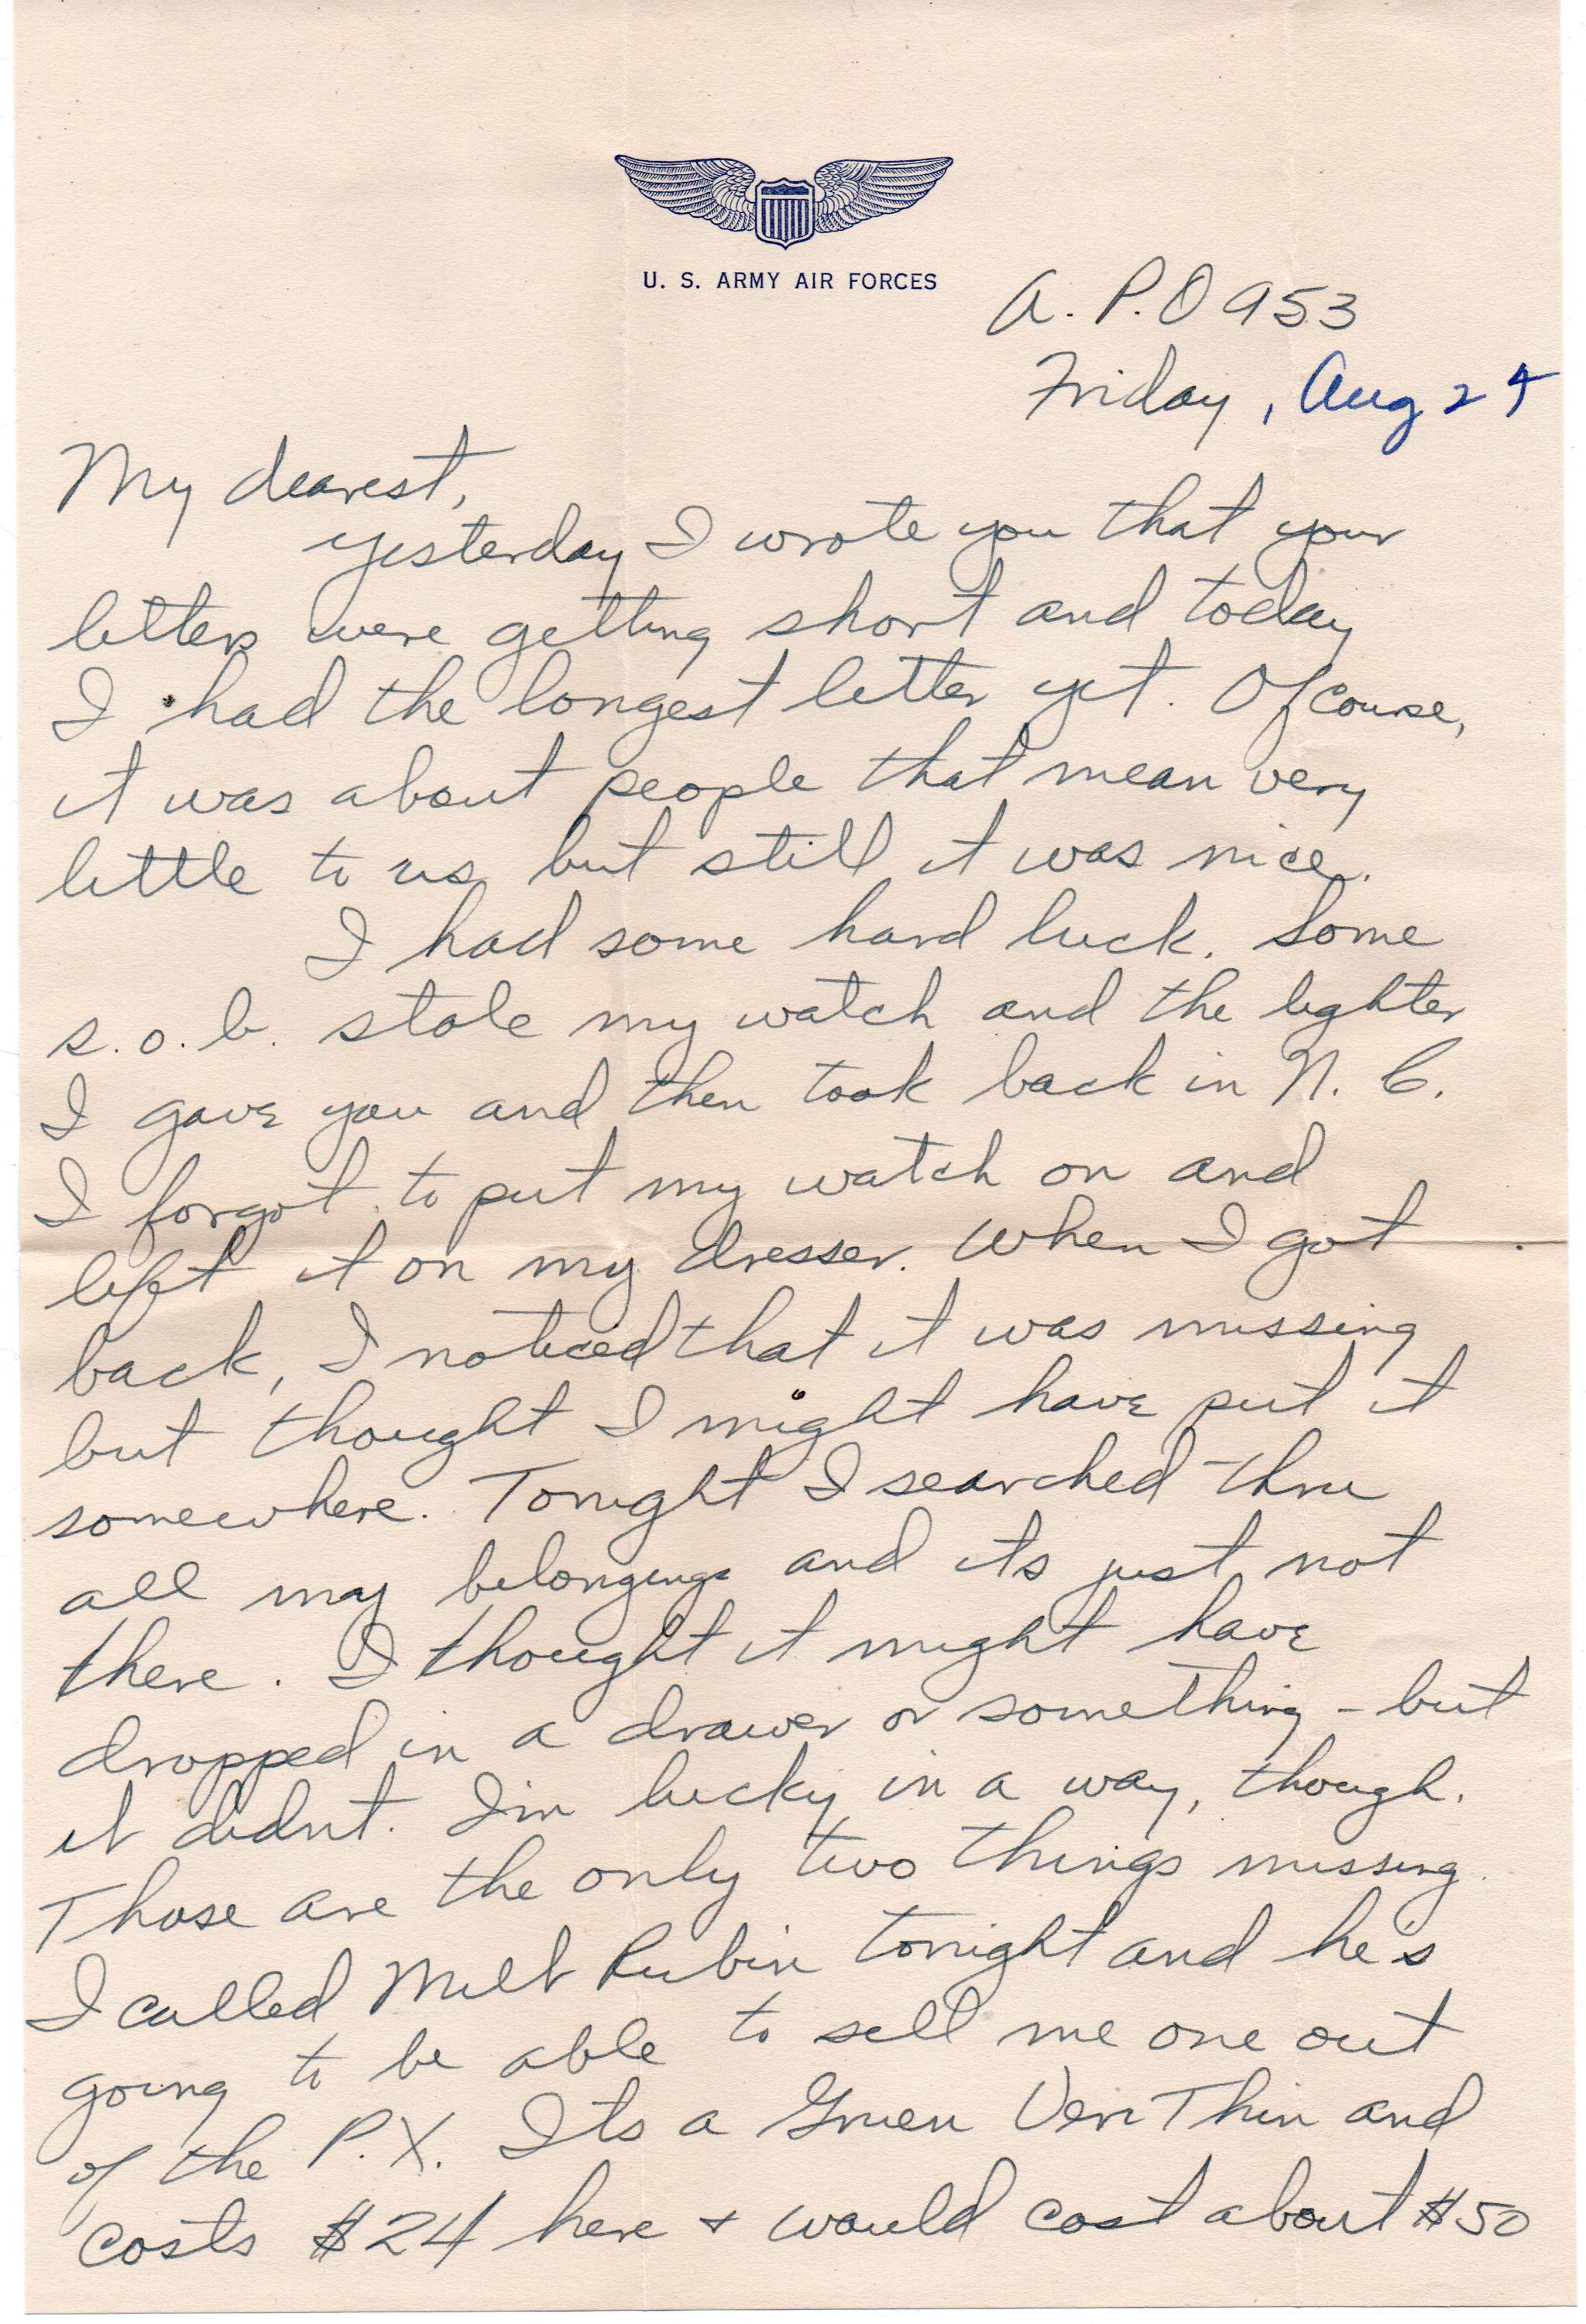 U. S. ARMY AIR FORCES
A. P. O 953
Friday, Aug 24
My dearest,
yesterday I wrote you that your
letters were getting short and today
I had the longest letter yet. Of course,
it was about people that mean very
little to us but still it was nice.
I had some hard luck. Some
s. o. b. stole my watch and the lighter
I gave you and then took back in N. C.
I forgot to put my watch on and
left it on my dresser. When I got
back, I noticed that it was missing
but thought I might have put it
somewhere. Tonight I searched thru
all my belongings and its just not
there. I thought it might have
dropped in a drawer or something - but
it didnt. I'm lucky in a way, though.
Those are the only two things missing.
I called Milt Rubin tonight and he's
going to be able to sell me one out
of the P. X. Its a Gruen Veri Thin and
costs $24 here + would cost about $50